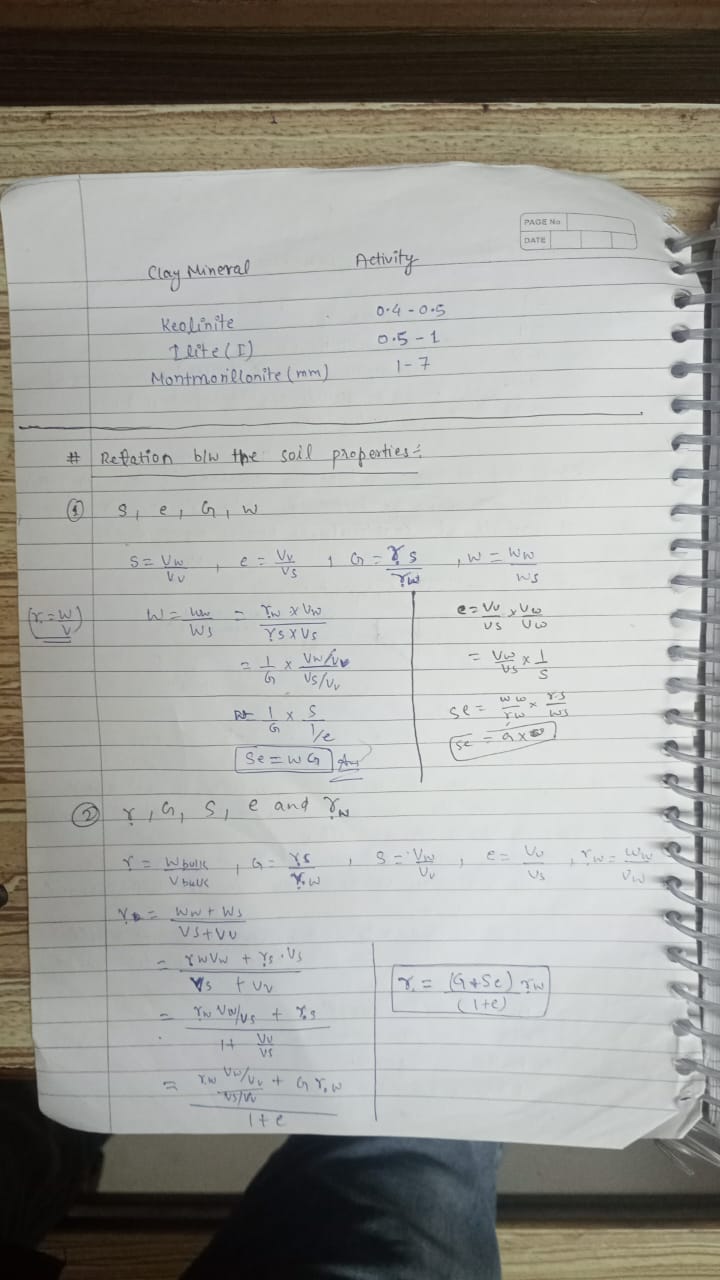 PAGE No
DATE
Clay Mineral Activity
Keolinite 0.4 - 0.5
Ilite (I) 0.5 - 1
Montmorillonite (mm) 1 - 7
# Relation b/w the soil properties :-
① S, e, G, w
S = Vw/Vv , e = Vv/Vs , G = γs/γw , w = Ww/Ws
(γ = W/V) W = Ww/Ws = γw × Vw / γs × Vs
= 1/G × Vw/Vv / Vs/Vv
= 1/G × S / 1/e
Se = wG Ans
e = Vv/Vs × Vw/Vw
= Vw/Vs × 1/S
Se = Ww/γw × γs/Ws
Se = G × w
② γ, G, S, e and γw
γ = Wbulk/Vbulk , G = γs/γw , S = Vw/Vv , e = Vv/Vs , γw = Ww/Vw
γ = Ww + Ws / Vs + Vv
= γwVw + γs·Vs / Vs + Vv
= γw Vw/Vs + γs / 1 + Vv/Vs
= γw Vw/Vv / Vs/Vv + G γw / 1 + e
γ = (G + Se) γw / (1 + e)